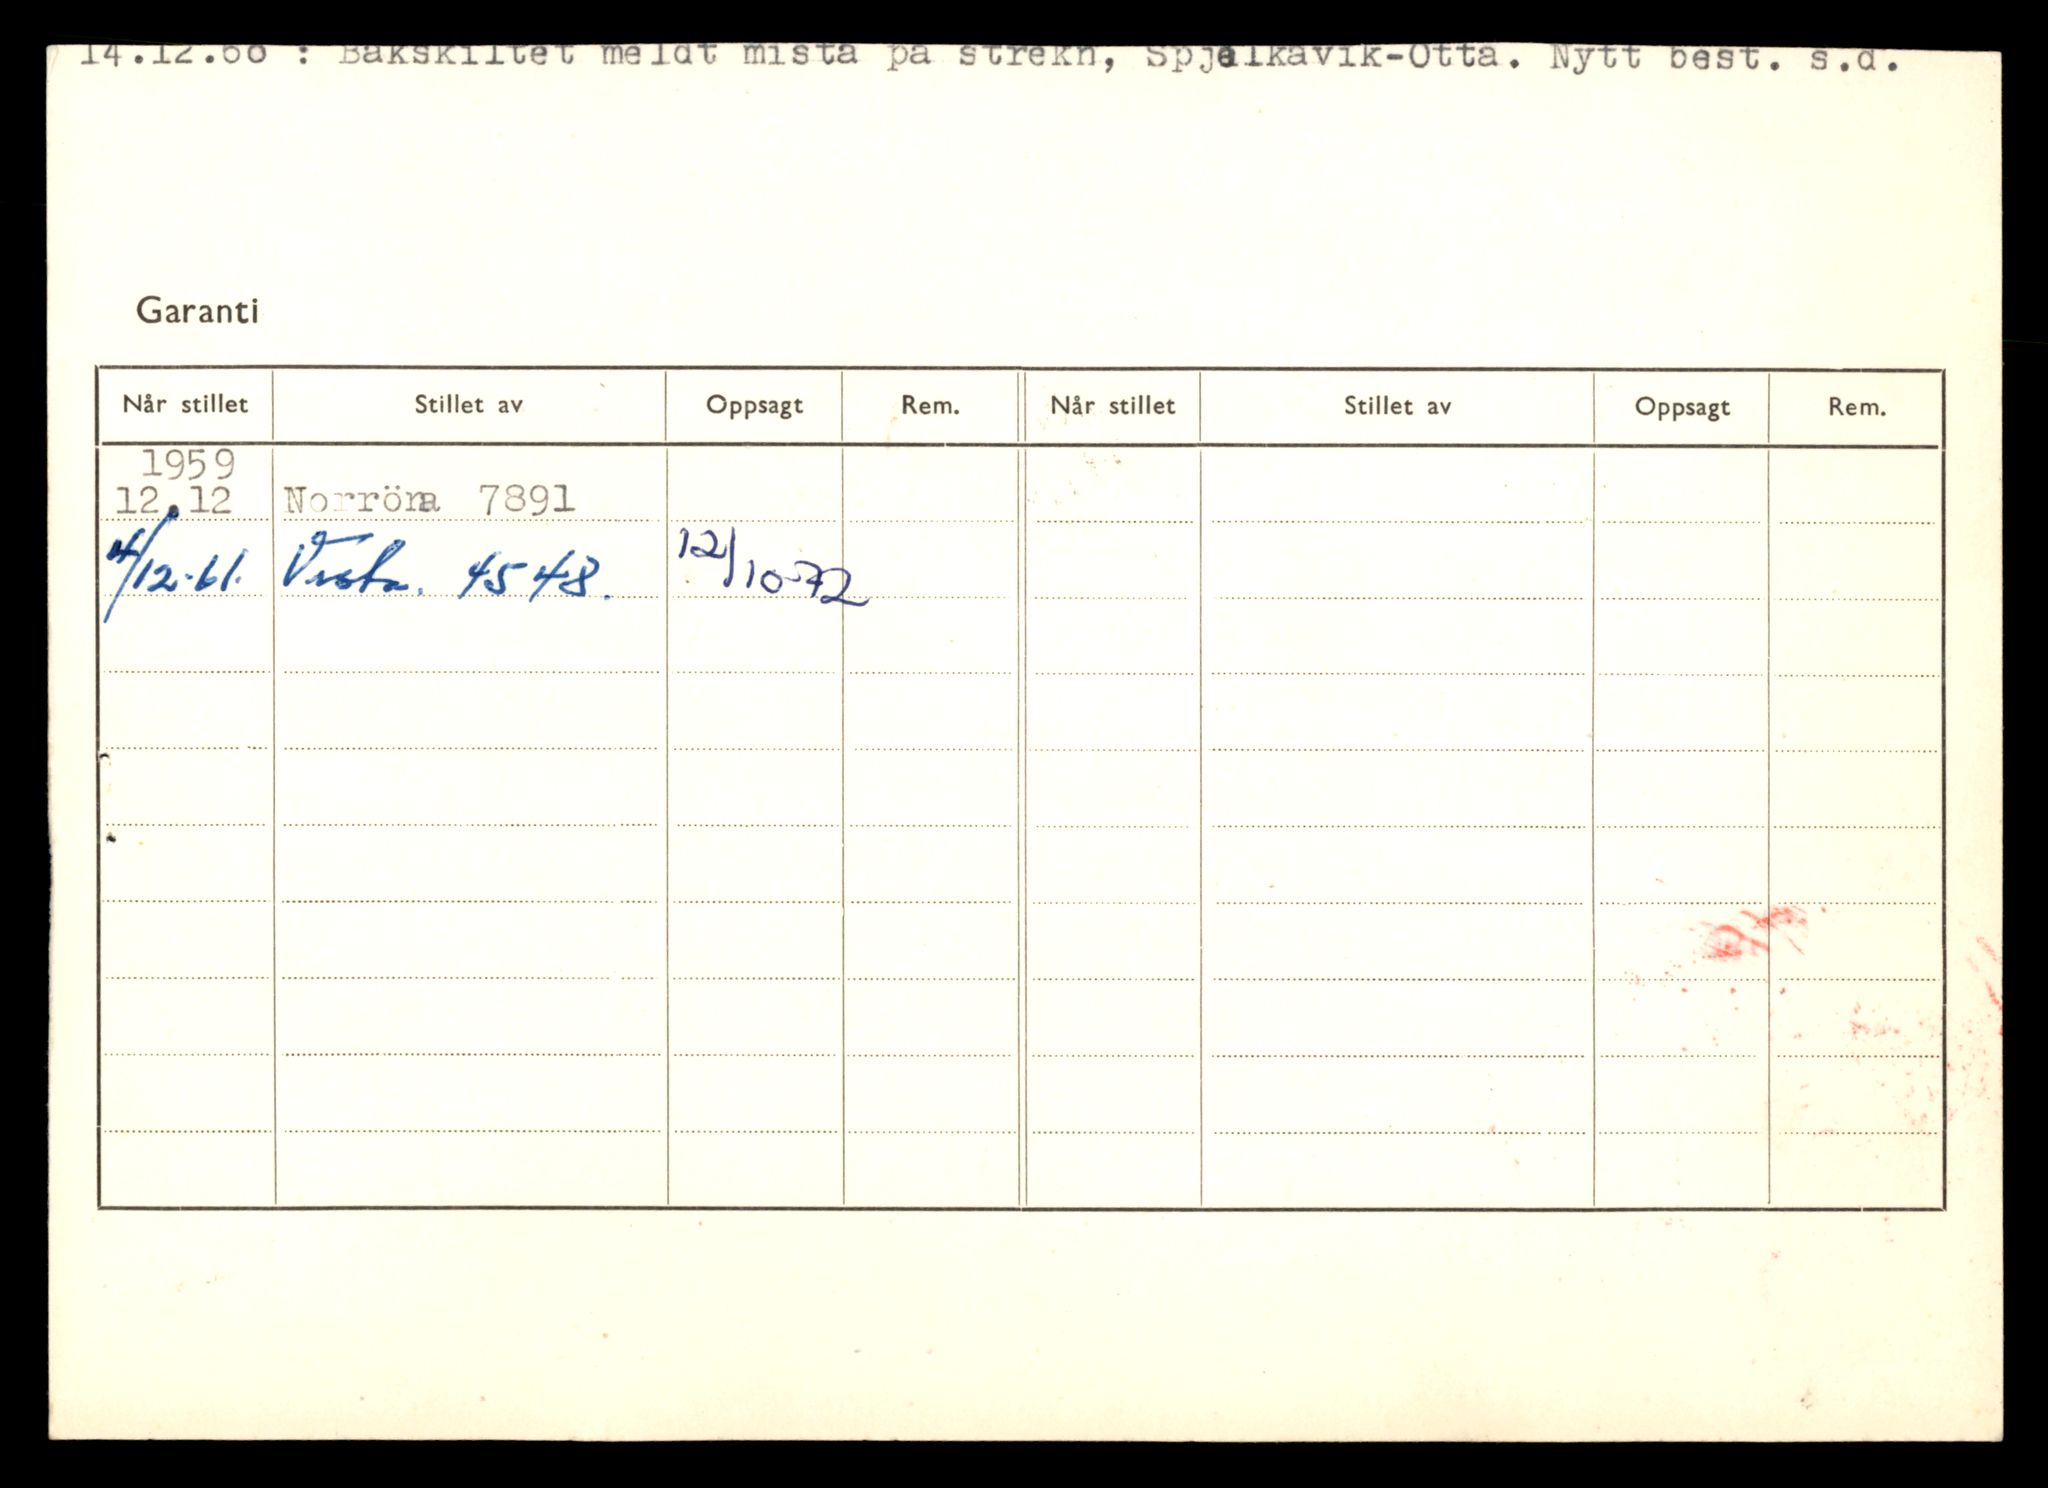 14.12.60 : Bakskiltet meldt mista på strekn, Spjelkavik-Otta. Nytt best. s.d.
Garanti
Når stillet Stillet av Oppsagt Rem. Når stillet Stillet av Oppsagt Rem.
1959
12.12 Norröna 7891
/12.61. Vesta. 4548. 12/10-72